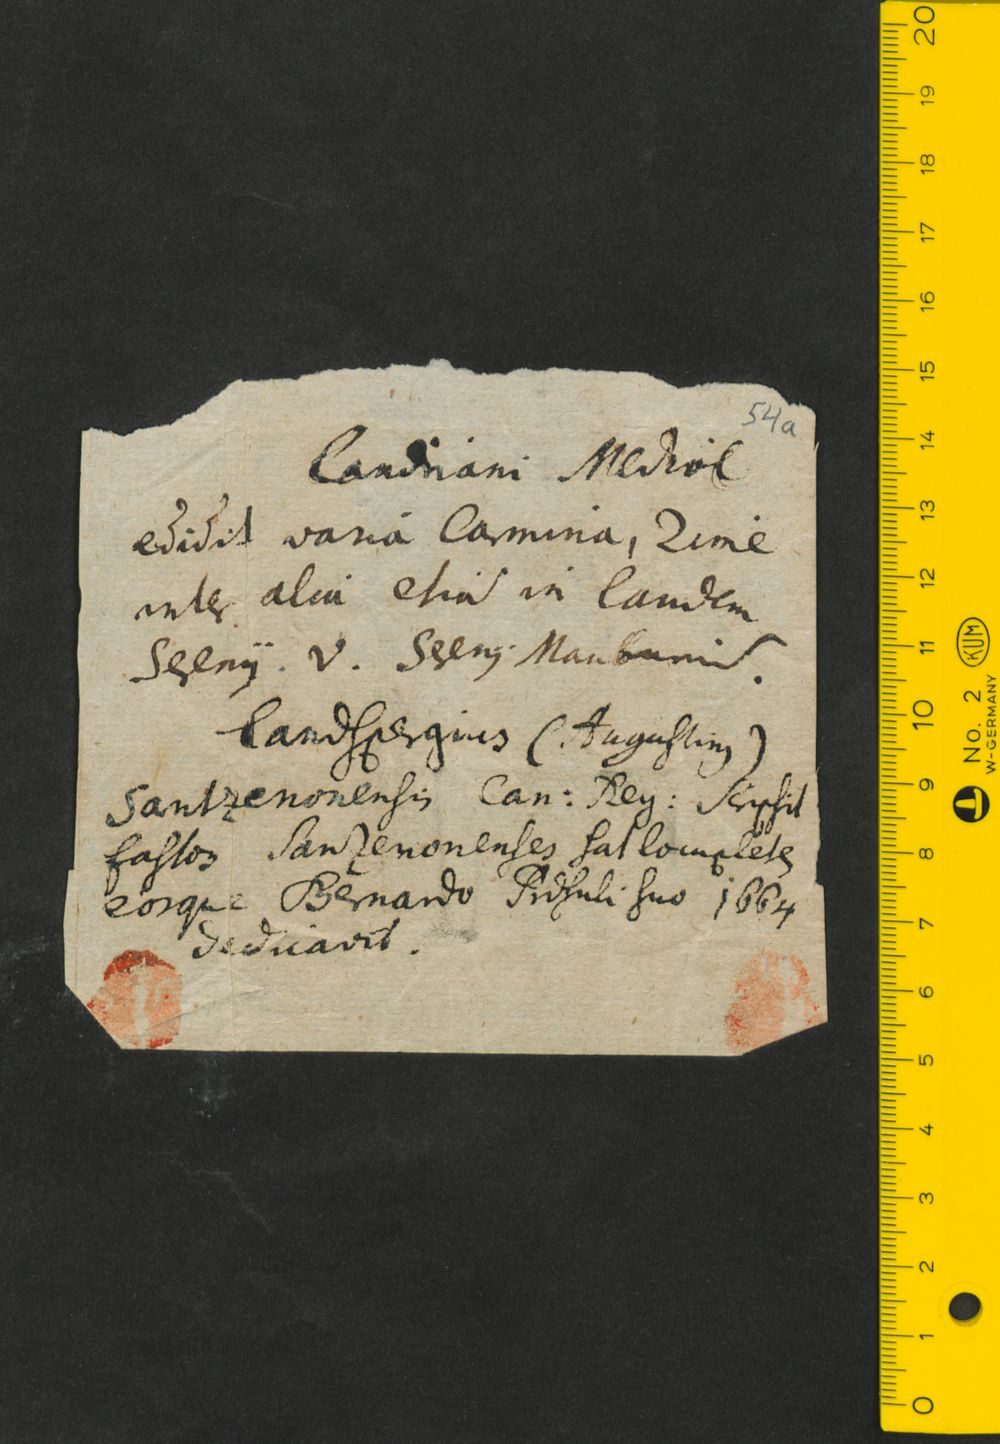 54a
Landriani Mediol
edidit varia Carmina, Rime
inter alia etia in laudem
Sereny. V. Sereny
Landspergius (Augustiny)
Santzenonensis Can: Reg: scripsit
fastos Santzenonenses sat locuplete
eosque Bernardo Prdsuli suo 1664
dedicavit.
20
19
18
17
16
15
14
13
12
11
10
9
8
7
6
5
4
3
2
1
0
KUM
No. 2
W-GERMANY